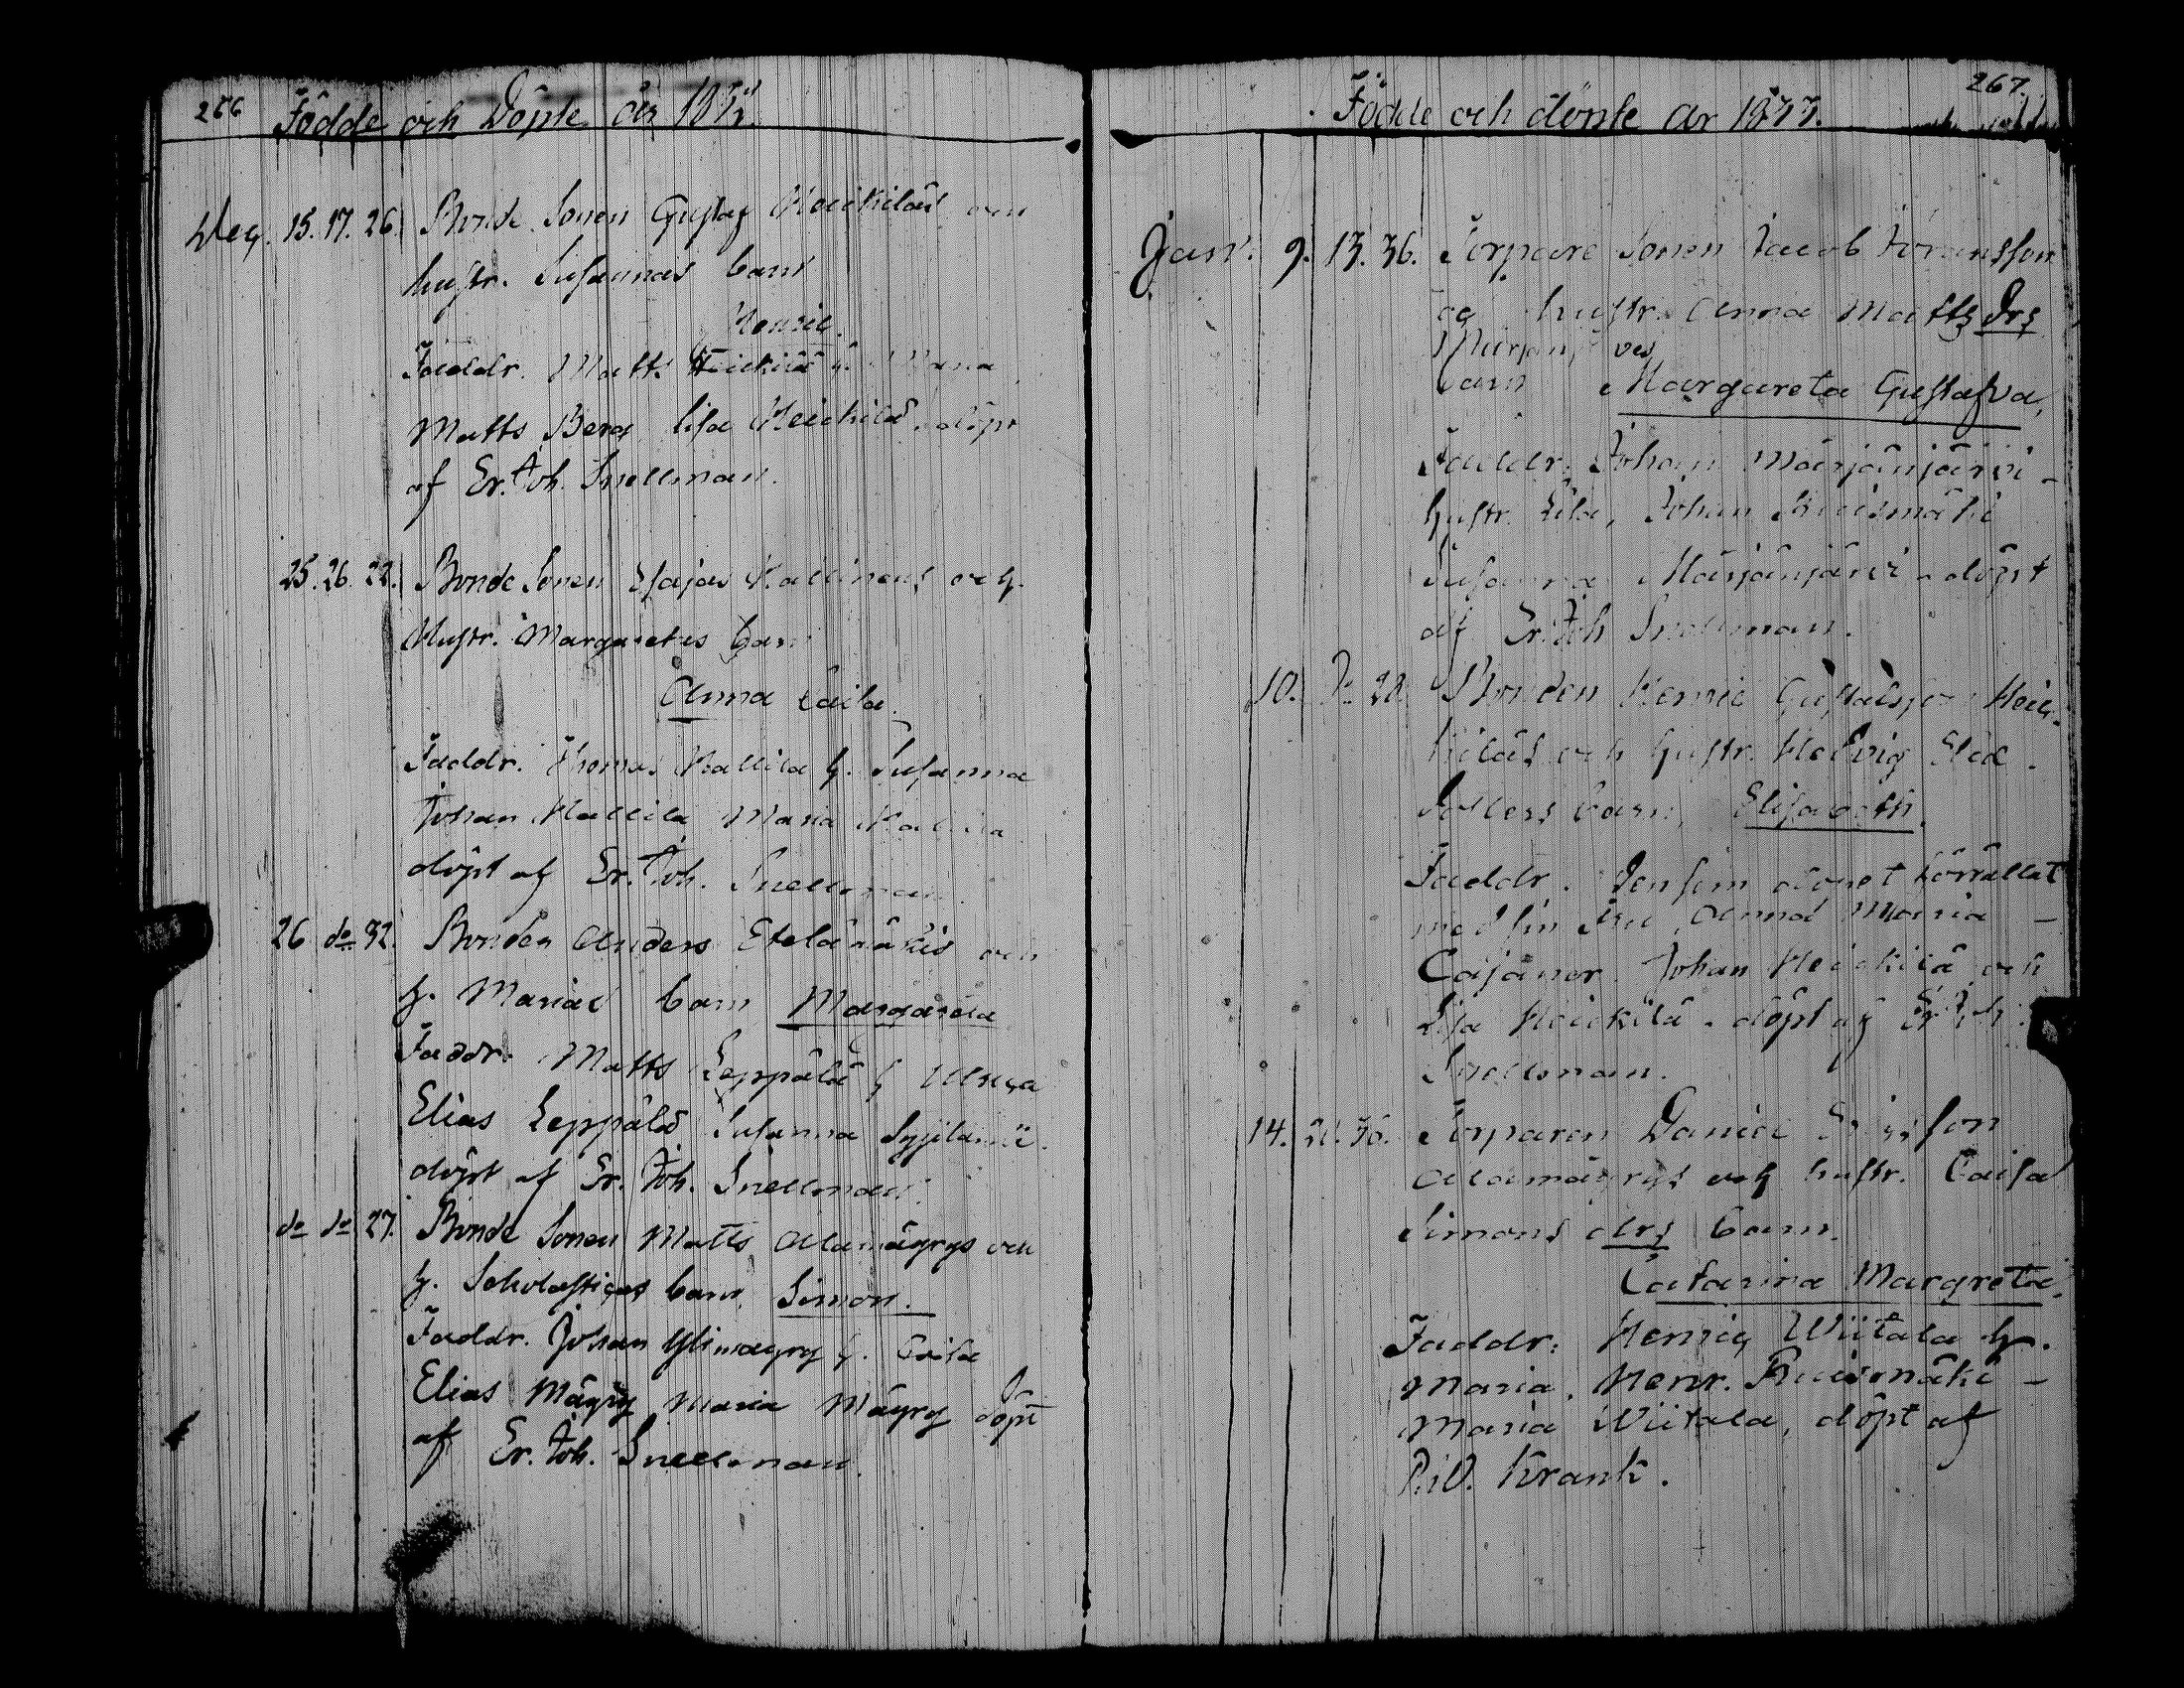 266 Födde och Döpte år 18
Dec. 15. 17. 26. Bonde Sonen Gustaf Heickiläs och
hustr. Susannas barn
Henric.
Faddr. Matts Heickilä h.
Matts Berg Lisa Heickilä. döpt
af Er. Joh. Snellman.
25. 26. 22. Bonde Sonen Esajas Kallinens och
Hustr. Margaretas barn
Anna Caisa.
Faddr. Thomas Kallila h. Susanna
Johan Kallila Maria Kallila
döpt af Er. Joh. Snellman.
26 do 32. Bonden Anders Etelämäkis och
h. Marias barn Margareta
Faddr. Matts Leppälä h Ulrica
Elias Leppälä Susanna
döpt af Er. Joh. Snellman.
do do 27. Bonde Sonen Matts Alamäyrys och
h. Scholasticas barn, Simon.
Faddr. Johan Ylimäyry h. Caisa
Elias Mäyry Maria Mäyry döpt
af Er. Joh. Snellman.
267.
Födde och döpte år 1833.
Janr. 9. 13. 36. Torpare Sonen Jacob
og hustr. Anna Matts Drs
barn Margareta Gustafva,
Faddr. Johan Märjänjärvi -
hustr. Lisa, Johan Ruismäki
Susanna Märjänjärvi - döpt
af Er. Joh Snellman.
10. Do 28. Bonden Henric Gustafsson Heic-
kiläs och hustr. Hedvig
barn, Elisabeth.
Faddr.
med sin Fru, Anna Maria -
Cajaner. Johan Heickilä och
Lisa Heickilä - döpt af Er Joh.
Snellman.
14. 20. 36. Torparen Daniel
Alamäyrys och hustr. Caisa
Simons drs barn.
Catarina Margreta.
Faddr: Henric Wiitala h.
Maria. Henr. Ruismäki -
Maria Wiitala, döpt af
P. W. Krank.